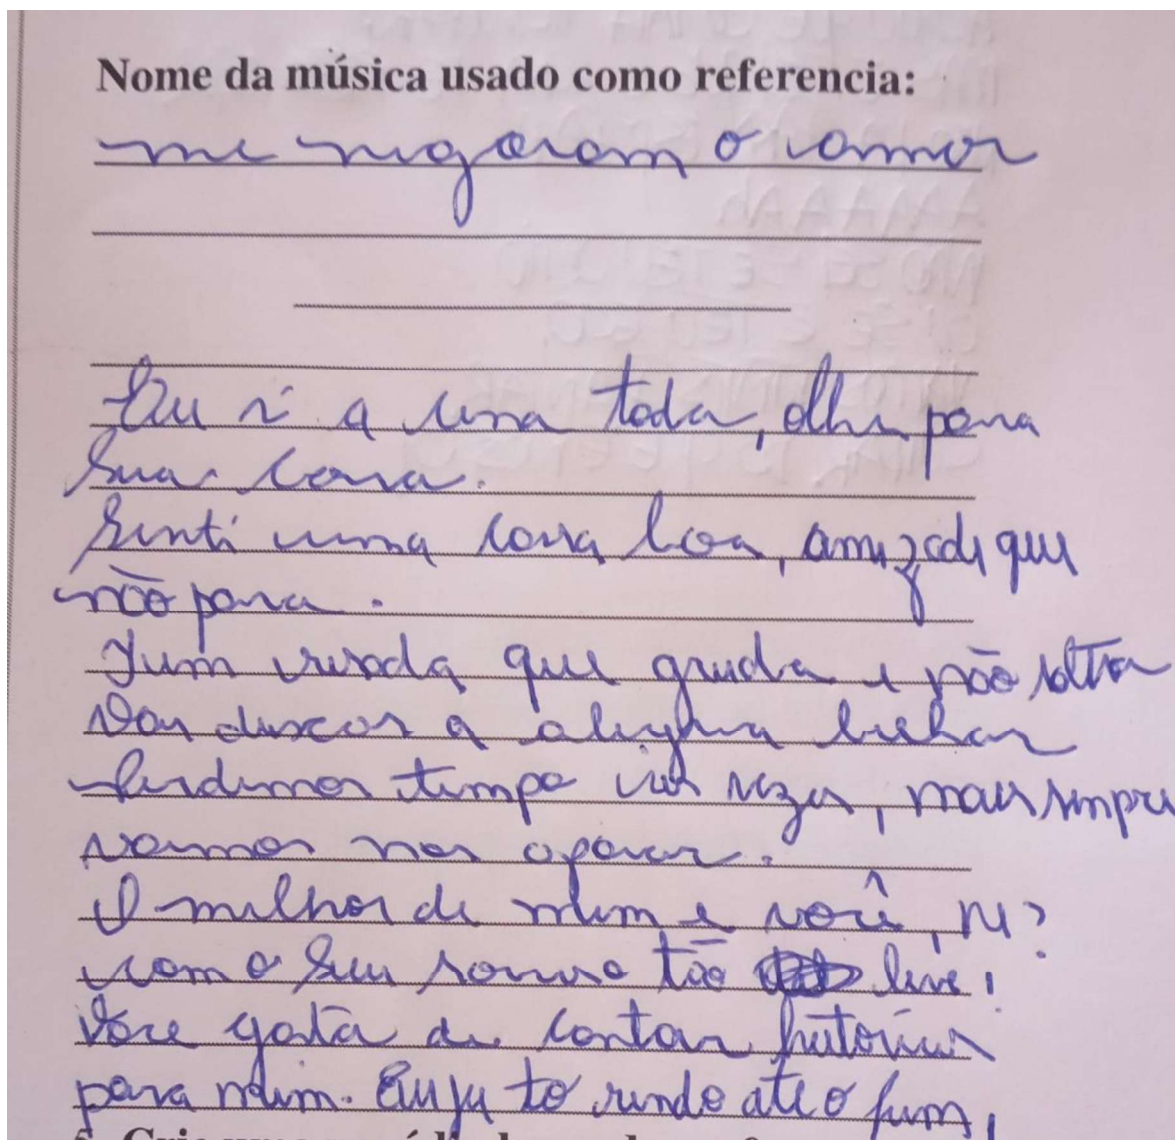 Nome da música usado como referencia:
me negaram o amor
Eu a toda, olhei para
Sua cara.
Senti uma coisa boa, amizade que
não para.
risada que gruda e não solta
a alegria
Perdemos tempo as vezes, mais sempre
vamos nos apoiar.
O melhor de mim e você, né?
com o Seu sorriso tão leve,
Você gosta de contar historias
para mim. Eu ja to rindo até o fim,